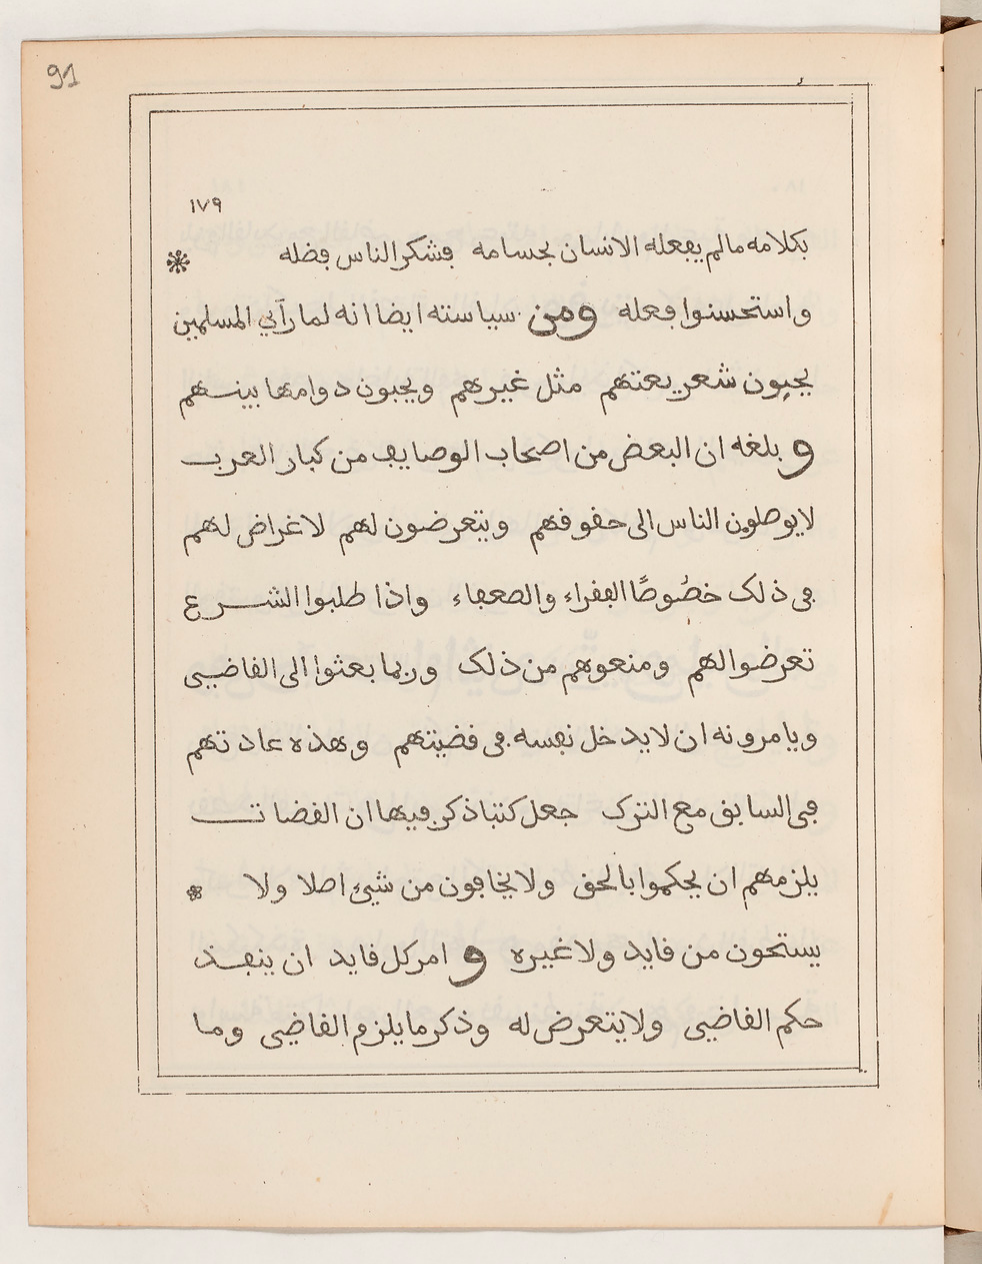 91
١٧٩
بكلامه مالم يفعله الانسان بحسامه فشكر الناس فضله *
واستحسنوا فعله ومن سياسته ايضا انه لما رآي المسلمين
يحبون شعريعتهم مثل غيرهم ويحبون دوامها بينهم
و بلغه ان البعض من اصحاب الوصايف من كبار العرب
لايوصلون الناس الى حقوقهم ويتعرضون لهم لاغراض لهم
في ذلك خصُوصًا الفقراء والضعفاء واذا طلبوا الشرع
تعرضوا لهم ومنعوهم من ذلك وربما بعثوا الى القاضيي
ويامرونه ان لايدخل نفسه في قضيتهم وهذه عادتهم
في السابق مع الترك جعل كتبا ذكر فيها ان القضات
يلزمهم ان يحكموا بالحق ولايخافون من شيئ اصلا ولا *
يستحون من قايد ولاغيره و امر كل قايد ان ينفذ
حكم القاضيي ولايتعرض له وذكر ما يلزم القاضيي وما